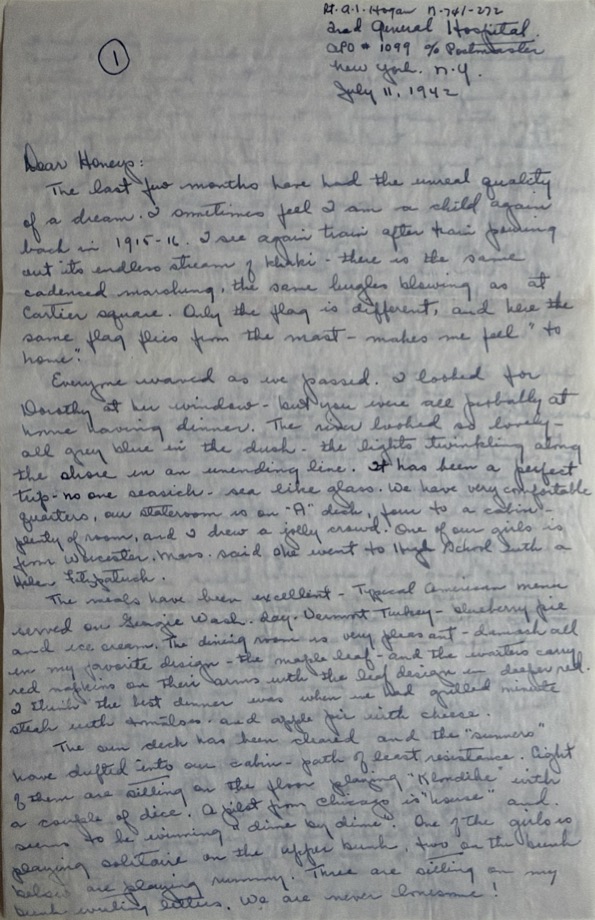 Lt. A.I. Hogan N-741-272
2nd General Hospital.
APO # 1099 % Postmaster
New York. N.Y.
July 11, 1942
1
Dear Honeys:
The last few months have had the unreal quality
of a dream. I sometimes feel I am a child again
back in 1915-16. I see again train after train pouring
out its endless stream of khaki - there is the same
cadenced marching, the same bugles blowing as at
Cartier square. Only the flag is different, and here the
same flag flies from the mast - makes me feel "to
home".
Everyone waved as we passed. I looked for
Dorothy at her window - but you were all probably at
home having dinner. The river looked so lovely -
all grey blue in the dusk - the lights twinkling along
the shore in an unending line. It has been a perfect
trip - no one seasick - sea like glass. We have very comfortable
quarters, our stateroom is on "A" deck, four to a cabin -
plenty of room, and I drew a jolly crowd. One of our girls is
from Worcester, Mass. said she went to High School with a
Helen Fitzpatrick.
The meals have been excellent - Typical American menu
served on Georgie Wash. day. Vermont Turkey - blueberry pie
and ice cream. The dining room is very pleasant - damask all
in my favorite design - the maple leaf - and the waiters carry
red napkins on their arms with the leaf design in deeper red.
I think the best dinner was when we had grilled minute
steak with and apple pie with cheese.
The sun deck has been cleared and the "sunners"
have drifted into our cabin - path of least resistance. Eight
of them are sitting on the floor playing "Klondike" with
a couple of dice. A pilot from Chicago is "house" and
seems to be winning "dime by dime". One of the girls is
playing solitaire on the upper bunk, two on the bunk
below are playing rummy. Three are sitting on my
bunk writing letters. We are never lonesome!